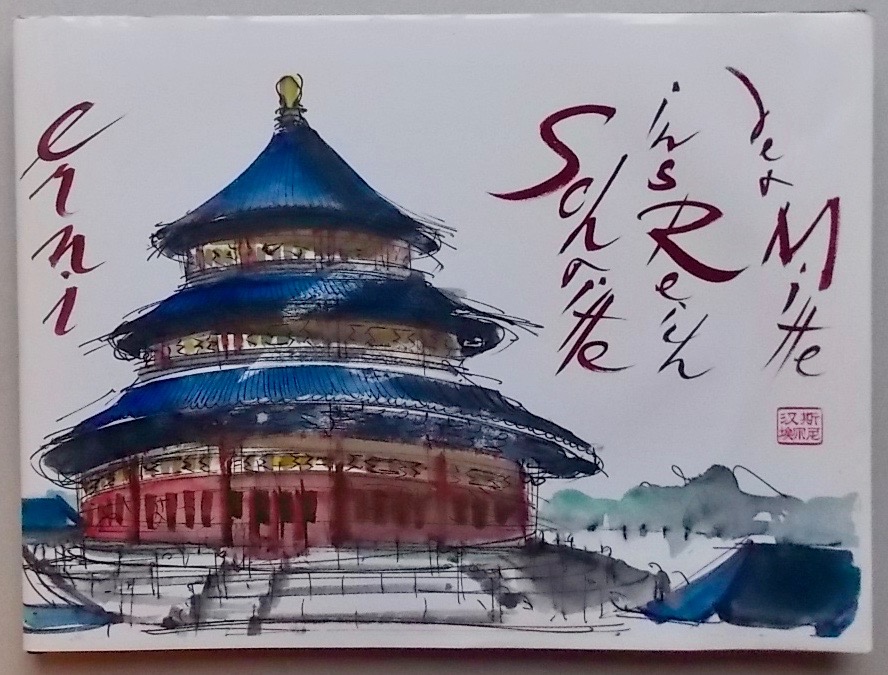 erni
Schritte
ins Reich
der Mitte
汉斯
埃尔尼